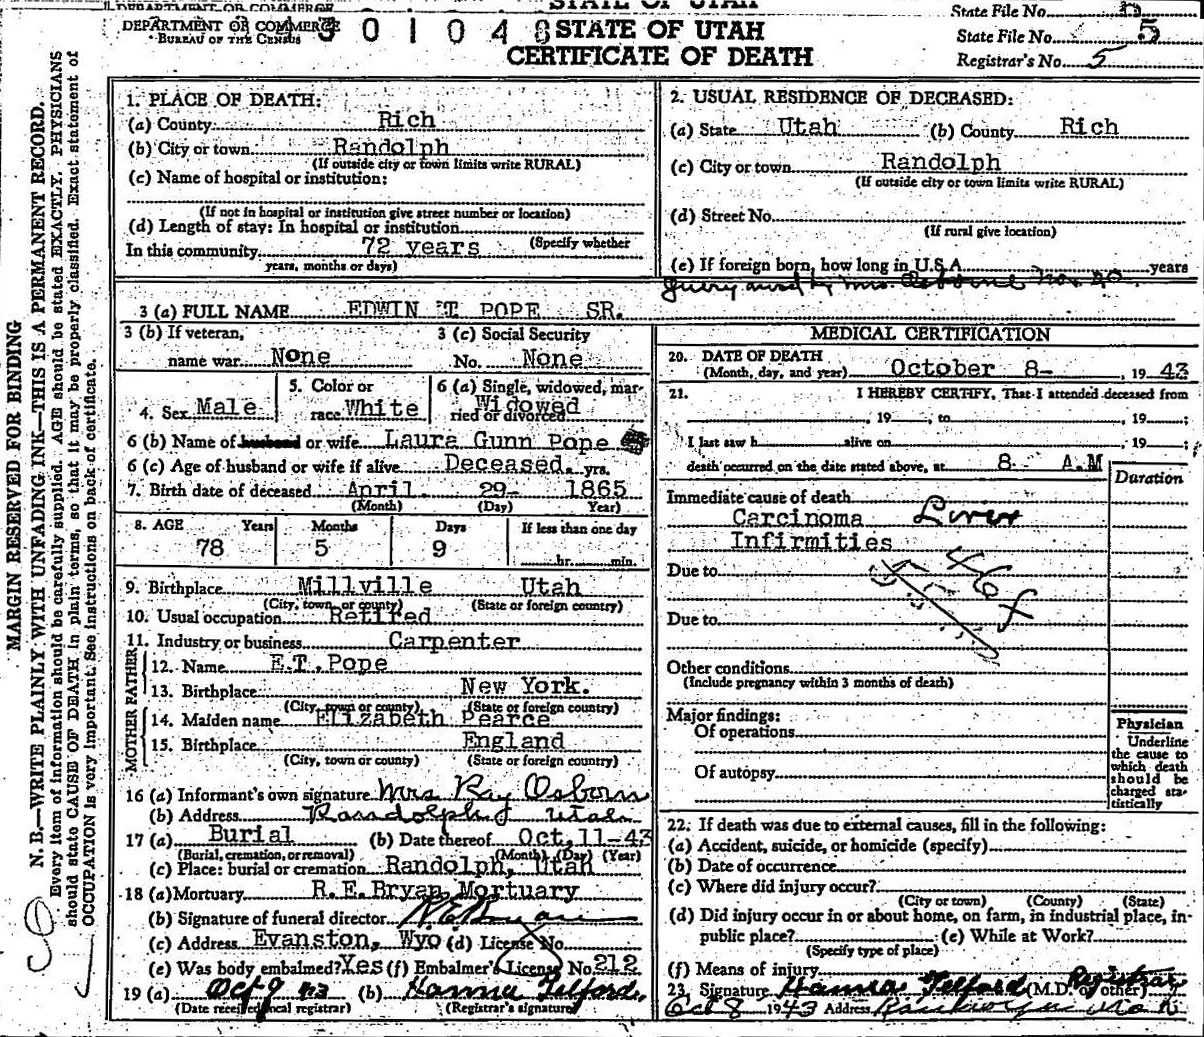 DEPARTMENT OF COMMERCE
STATE OF UTAH
State File No.
DEPARTMENT OF COMMERCE
BUREAU OF THE CENSUS
3 0 1 0 4 8
STATE OF UTAH
CERTIFICATE OF DEATH
State File No. 5
Registrar's No. 5
MARGIN RESERVED FOR BINDING
N. B.—WRITE PLAINLY WITH UNFADING INK—THIS IS A PERMANENT RECORD.
Every item of information should be carefully supplied. AGE should be stated EXACTLY. PHYSICIANS
should state CAUSE OF DEATH in plain terms, so that it may be properly classified. Exact statement of
OCCUPATION is very important. See instructions on back of certificate.
1. PLACE OF DEATH:
(a) County Rich
(b) City or town Randolph
(If outside city or town limits write RURAL)
(c) Name of hospital or institution:
(If not in hospital or institution give street number or location)
(d) Length of stay: In hospital or institution
(Specify whether
In this community 72 years
years, months or days)
2. USUAL RESIDENCE OF DECEASED:
(a) State Utah (b) County Rich
(c) City or town Randolph
(If outside city or town limits write RURAL)
(d) Street No.
(If rural give location)
(e) If foreign born, how long in U.S.A. years
3 (a) FULL NAME EDWIN T POPE SR.
3 (b) If veteran,
name war None
3 (c) Social Security
No. None
4. Sex Male
5. Color or
race White
6 (a) Single, widowed, mar-
ried or divorced Widowed
6 (b) Name of husband or wife Laura Gunn Pope
6 (c) Age of husband or wife if alive Deceased. yrs.
7. Birth date of deceased April. 29- 1865
(Month) (Day) Year)
8. AGE Years Months Days If less than one day
78 5 9 hr. min.
9. Birthplace Millville Utah
(City, town, or county) (State or foreign country)
10. Usual occupation Retired
11. Industry or business Carpenter
FATHER
12. Name E.T. Pope
13. Birthplace New York.
(City, town or county) (State or foreign country)
MOTHER
14. Maiden name Elizabeth Pearce
15. Birthplace England
(City, town or county) (State or foreign country)
16 (a) Informant's own signature Mrs Ray Osborn
(b) Address Randolph Utah
17 (a) Burial (b) Date thereof Oct, 11-43
(Burial, cremation, or removal) (Month) (Day) (Year)
(c) Place: burial or cremation Randolph, Utah
18 (a) Mortuary R.E. Bryan Mortuary
(b) Signature of funeral director R.E. Bryan
(c) Address Evanston, Wyo (d) License No.
(e) Was body embalmed? Yes (f) Embalmer's License No. 212
19 (a) Oct 9 43 (b) Hanna Telford.
(Date received local registrar) (Registrar's signature)
MEDICAL CERTIFICATION
20. DATE OF DEATH
(Month, day, and year) October 8- , 19 43
21. I HEREBY CERTIFY, That I attended deceased from
, 19 , to , 19 ;
I last saw h alive on , 19 ;
death occurred on the date stated above, at 8- A.M
Duration
Immediate cause of death
Carcinoma Liver
Infirmities
Due to
46f
Due to
Other conditions
(Include pregnancy within 3 months of death)
Major findings:
Of operations
Of autopsy
Physician
Underline
the cause to
which death
should be
charged sta-
tistically
22. If death was due to external causes, fill in the following:
(a) Accident, suicide, or homicide (specify)
(b) Date of occurrence
(c) Where did injury occur?
(City or town) (County) (State)
(d) Did injury occur in or about home, on farm, in industrial place, in
public place? (e) While at Work?
(Specify type of place)
(f) Means of injury
23. Signature Hanna Telford Registrar (M.D. or other)
Oct 8 1943 Address